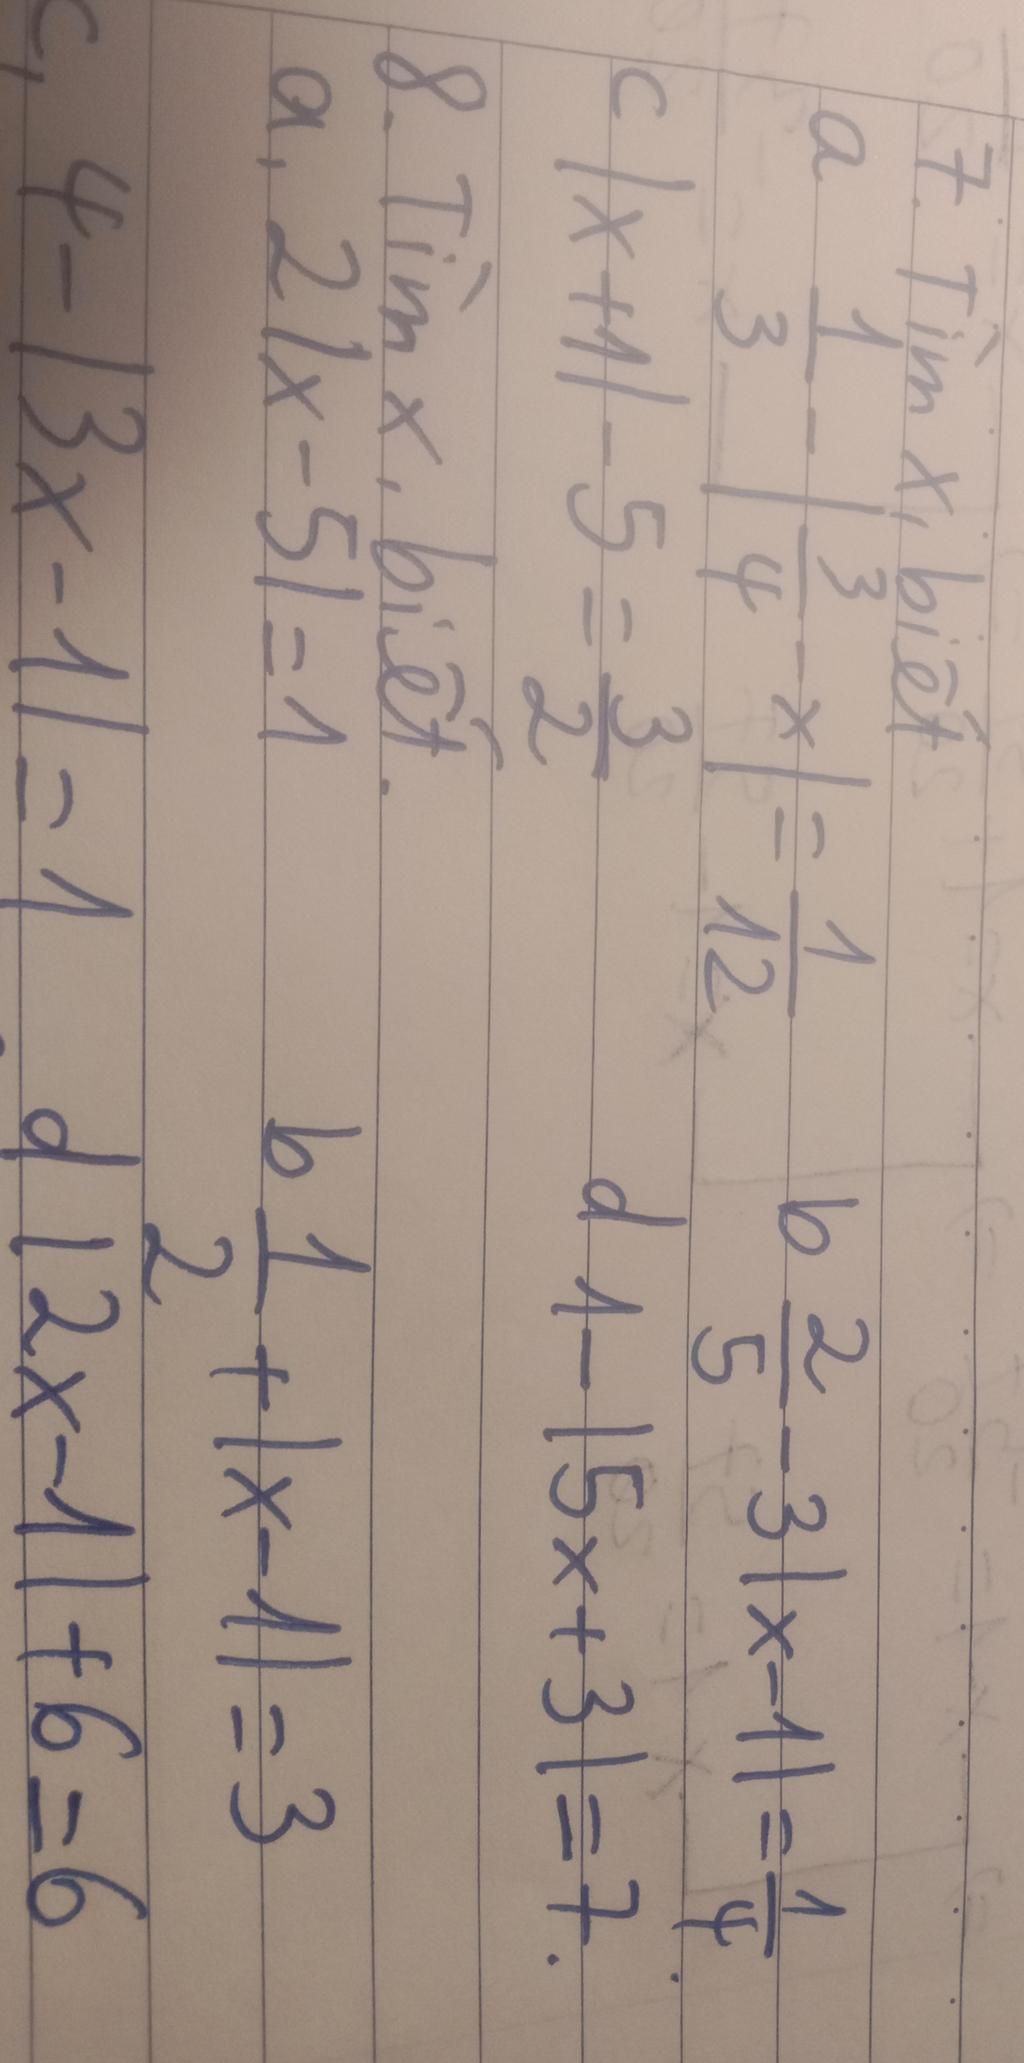 7. Tìm x, biết
a 1/3 - |3/4 - x| = 1/12 b 2/5 - 3|x-1| = 1/4
c |x+1| - 5 = 3/2 d 1 - |5x+3| = 7.
8. Tìm x, biết.
a, 2|x-5| = 1 b 1/2 + |x-1| = 3
c, 4 - |3x-1| = 1 d |2x-1| + 6 = 6